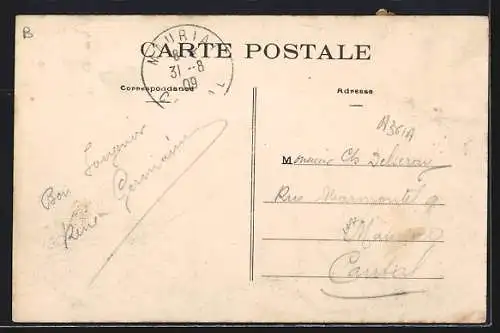 B
MAURIAC
8
31 -8
09
CARTE POSTALE
Correspondance
Adresse
A361A
Bon Souvenir
Germaine
Monsieur Ch
Rue Marmontel 9
Cantal